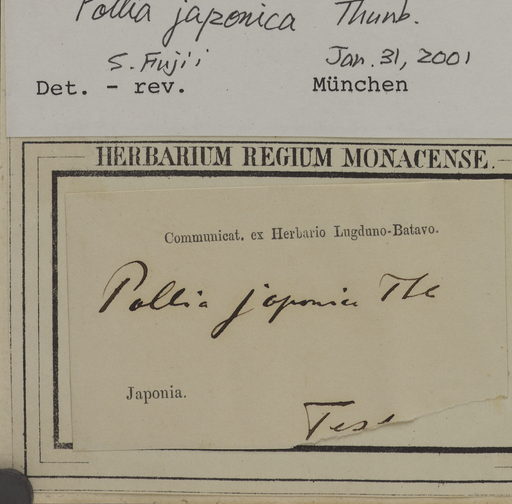 Pollia japonica Thunb.
S. Fujii Jan. 31, 2001
Det. - rev. München
HERBARIUM REGIUM MONACENSE.
Communicat. ex Herbario Lugduno-Batavo.
Pollia japonica Th
Japonia.